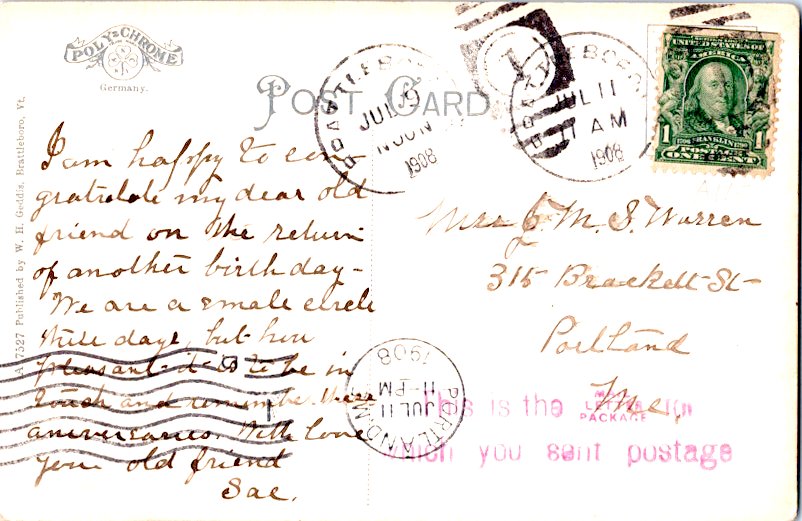 POLY-CHROME
Germany.
POST CARD
A 7527 Published by W. H. Geddis, Brattleboro, Vt.
BRATTLEBORO
JUL 9
NOON
1908
1
BRATTLEBORO
JUL 11
11 AM
1908
UNITED STATES OF
AMERICA
1 FRANKLIN 1
ONE CENT
I am happy to con
gratulate my dear old
friend on the return
of another birthday-
We are a small circle
these days, but how
pleasant it is to be in
touch and remember these
aniversaries. With love
your old friend
Sae.
Mrs J. M. S. Warren
315 Brackett St-
Portland
Me.
PORTLAND, ME.
JUL 11
11-PM
1908
This is the
LETTER
PACKAGE
which you sent postage